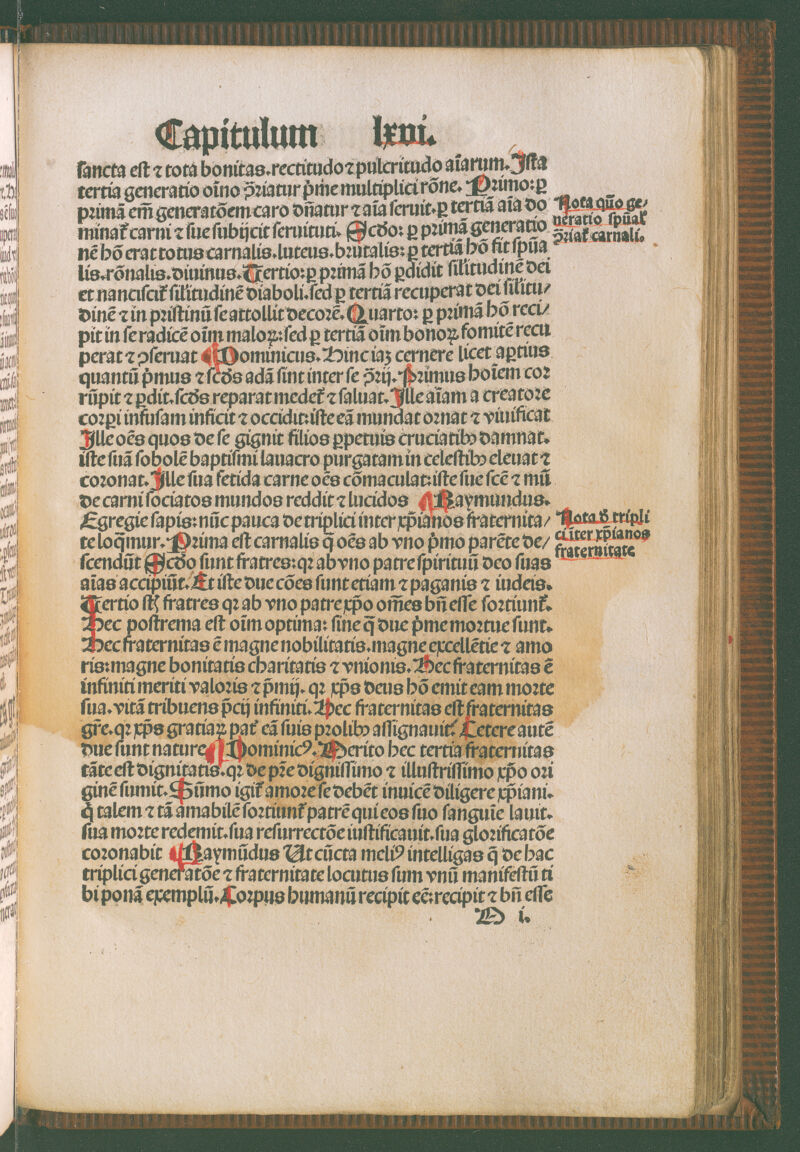 Capitulum lxvi.
sancta est ⁊ tota bonitas.rectitudo ⁊ pulcritudo aīarum. Ista
tertia generatio oīno ↄ̄riatur p̄me multiplici rōne. Primo: ꝑ
primā em̄ generatōem caro dn̄atur ⁊ aīa seruit. ꝑ tertiā aīa do
minat᷑ carni ⁊ sue subijcit seruituti. Scďo: ꝑ primā generatio
nē hō erat totus carnalis.luteus.brutalis: ꝑ tertiā hō fit spūa
lis.rōnalis.diuinus. Tertio: ꝑ primā hō ꝑdidit sil̄itudinē dei
et nanciscit᷑ sil̄itudinē diaboli.sed ꝑ tertiā recuperat dei sil̄itu/
dinē ⁊ in pristinū se attollit decorē. Quarto: ꝑ primā hō reci/
pit in se radicē oīm maloꝝ: sed ꝑ tertiā oīm bonoꝝ fomitē recu
perat ⁊ ↄseruat ¶ Dominicus. Hinc iaꝫ cernere licet aꝑtius
quantū p̄mus ⁊ scďs adā sint inter se ↄ̄rij. Primus hoīem cor
rūpit ⁊ ꝑdit.scďs reparat medet᷑ ⁊ saluat. Ille aīam a creatore
corpi infusam inficit ⁊ occidit: iste eā mundat ornat ⁊ viuificat
Ille oēs quos de se gignit filios ꝑpetuis cruciatibꝰ damnat.
iste suā sobolē baptismi lauacro purgatam in celestibꝰ eleuat ⁊
coronat. Ille sua fetida carne oēs cōmaculat: iste sue scē ⁊ mū
de carni sociatos mundos reddit ⁊ lucidos ¶ Raymundus.
Egregie sapis: nūc pauca de triplici inter xp̄ianos fraternita/
te loq̄mur. Prima est carnalis q̄ oēs ab vno p̄mo parēte de/
scendūt Scďo sunt fratres: qꝛ ab vno patre spirituū deo suas
aīas accipiūt. Et iste due cōes sunt etiam ⁊ paganis ⁊ iudeis.
Tertio sꝫ fratres qꝛ ab vno patre xp̄o om̄es bn̄ esse sortiunt᷑.
Hec postrema est oīm optima: sine q̄ due p̄me mortue sunt.
Hec fraternitas ē magne nobilitatis.magne excellētie ⁊ amo
ris: magne bonitatis charitatis ⁊ vnionis. Hec fraternitas ē
infiniti meriti valoris ⁊ p̄mij. qꝛ xp̄s deus hō emit eam morte
sua. vitā tribuens p̄cij infiniti. Hec fraternitas est fraternitas
gr̄e. qꝛ xp̄s gratiaꝝ pat᷑ eā suis prolibꝰ assignauit. Cetere autē
due sunt nature ¶ Dominicꝰ. Merito hec tertia fraternitas
tāte est dignitatis. qꝛ de pr̄e dignissimo ⁊ illustrissimo xp̄o ori
ginē sumit. Sūmo igit᷑ amore se debēt inuicē diligere xp̄iani.
q̇ talem ⁊ tā amabilē sortiunt᷑ patrē qui eos suo sanguīe lauit.
sua morte redemit.sua resurrectōe iustificauit.sua glorificatōe
coronabit ¶ Raymūdus Ut cūcta meliꝰ intelligas q̄ de hac
triplici generatōe ⁊ fraternitate locutus sum vnū manifestū ti
bi ponā exemplū. Corpus humanū recipit eē: recipit ⁊ bn̄ esse
D i.
Nota quō ge/
neratio spūal᷑
ↄ̄riat᷑ carnali.
Nota ď tripli
ci īter xp̄ianos
fraternitate